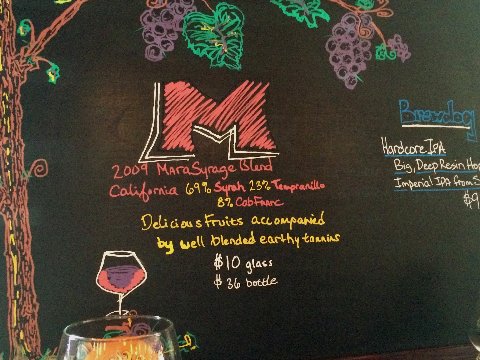 M
2009 MaraSyrage Blend
California 69% Syrah 23% Tempranillo
8% Cab Franc
Delicious Fruits accompanied
by well blended earthy tannins
$10 glass
$36 bottle
Brewdog
Hardcore IPA
Big, Deep Resin, Hop
Imperial IPA from S
$9